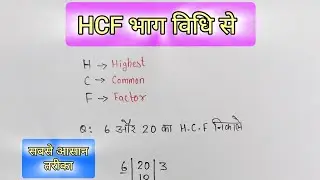 HCF भाग विधि से
H → Highest
C → Common
F → Factor
Q: 6 और 20 का H.C.F निकालें
सबसे आसान
तरीका
6 | 20 | 3
18